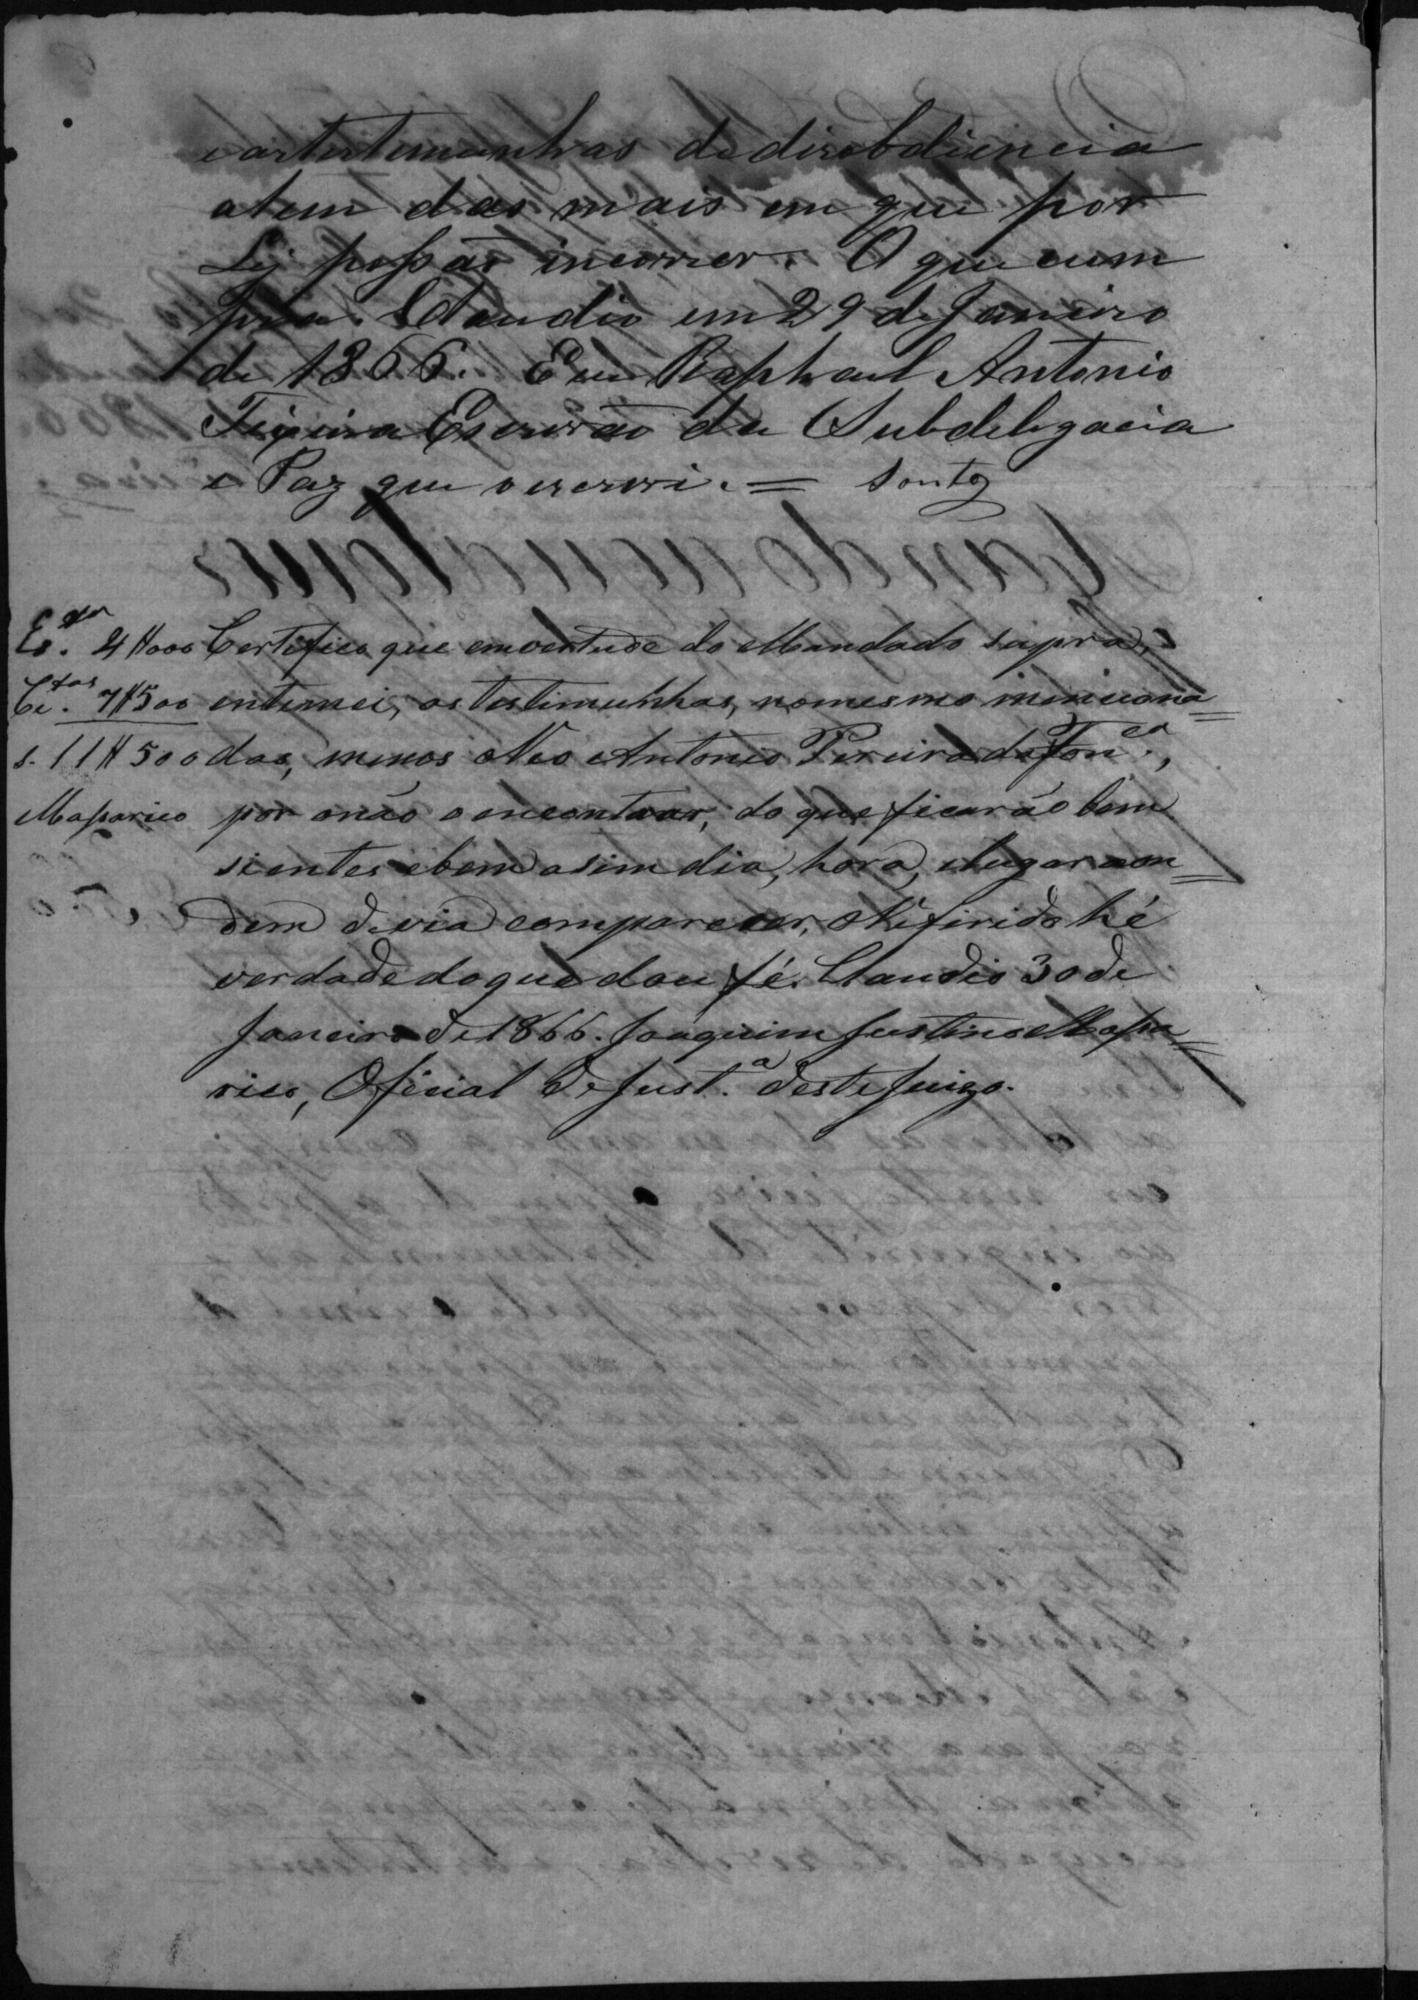 e as testemunhas de disobdiencia
alem das mais em que por
Ley possão incorrer. O que cum
pra. Claudio em 29 de Janeiro
de 1866. Eu Raphael Antonio
Teixeira Escrivão da Subdelegacia
e Paz que o escrevi. = Sontg
Certifico que em vertude do Mandado supra,
entimei, as testimunhas, no mesmo minciona=
das, menos Neo Antonio Pereira da Fon.ca,
por onão o encontrar, do que ficarão bem
sientes e bem asim dia, hora, elugar aon=
dem devia comparecer, O Rifirido hé
verdade do que dou fé. Claudio 30 de
Janeiro de 1866. Joaquim Justino Mapa=
rico, Oficial de Just.a deste Juizo.
4#000
7#500
S. 11#500
Maparico